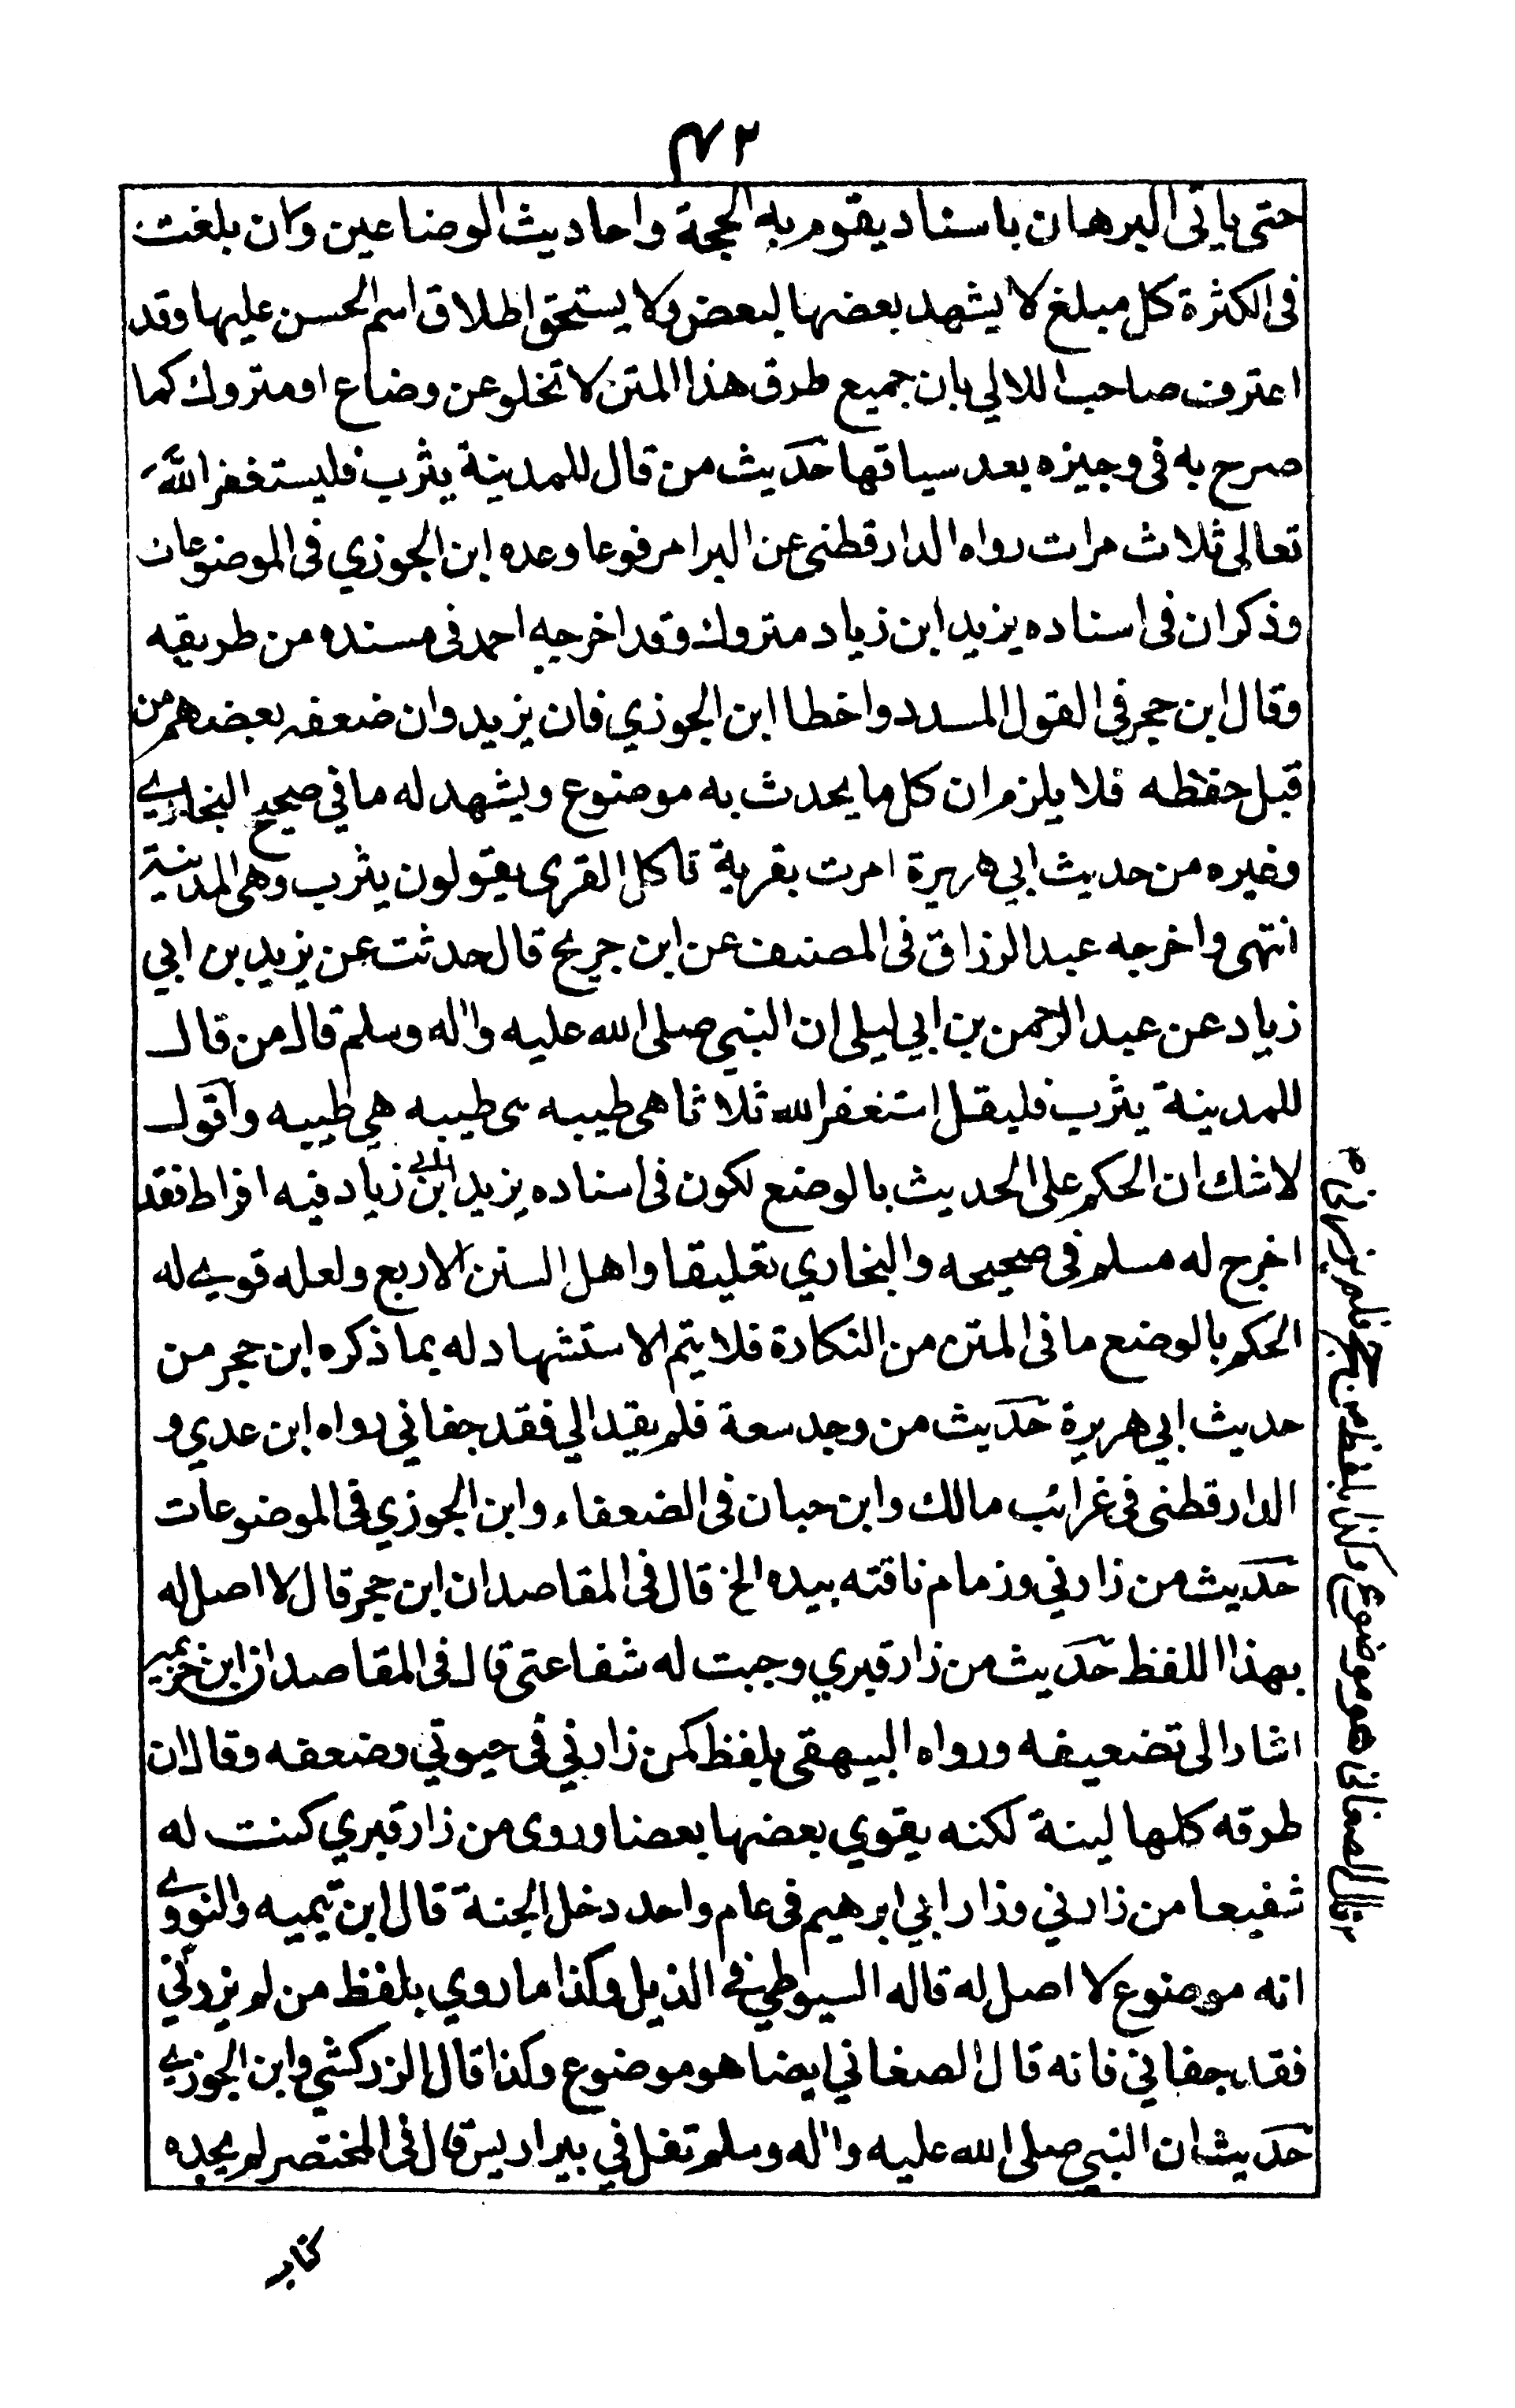 ٤٢
حتى ياتى البرهان باسناد يقوم به الحجة واحاديث الوضاعين وان بلغت
فى الكثرة كل مبلغ لا يشهد بعضها لبعض ولا يستحق اطلاق اسم الحسن عليها وقد
اعترف صاحب اللالي بان جميع طرق هذا المتن لا تخلو عن وضاع او متروك كما
صرح به فى وجيزه بعد سياقها حديث من قال للمدينة يثرب فليستغفر الله
تعالى ثلاث مرات رواه الدارقطنى عن البرا مرفوعا وعده ابن الجوزي فى الموضوعات
وذكر ان فى اسناده يزيد ابن زياد متروك وقد اخرجه احمد فى مسنده من طريقه
وقال ابن حجر فى القول المسدد واخطا ابن الجوزي فان يزيد وان ضعفه بعضهم من
قبل حفظه فلا يلزم ان كل ما يحدث به موضوع ويشهد له ما في صحيح البخاري
وغيره من حديث ابي هريرة امرت بقرية تاكل القرى يقولون يثرب وهى المدينة
انتهى واخرجه عبد الرزاق فى المصنف عن ابن جريج قال حدثت عن يزيد بن ابي
زياد عن عبد الرحمن بن ابي ليلى ان النبي صلى الله عليه واله وسلم قال من قال
للمدينة يثرب فليقل استغفر الله ثلاثا هى طيبه هى طيبه هي طيبه واقول
لا شك ان الحكم على الحديث بالوضع لكون فى اسناده يزيد ابن ابي زياد فيه افراط فقد
اخرج له مسلم فى صحيحه والبخاري تعليقا واهل السنن الاربع ولعله قوي له
الحكم بالوضع ما فى المتن من النكارة فلا يتم الاستشهاد له بما ذكره ابن حجر من
حديث ابي هريرة حديث من وجد سعة فلم يفد الي فقد جفاني رواه ابن عدي و
الدارقطنى فى غرائب مالك وابن حبان فى الضعفاء وابن الجوزي فى الموضوعات
حديث من زارني وزمام ناقته بيده الخ قال فى المقاصد ان ابن حجر قال لا اصل له
بهذا اللفظ حديث من زار قبري وجبت له شفاعتى قال فى المقاصد ان ابن خزيمه
اشار الى تضعيفه ورواه البيهقى بلفظ كمن زارني فى حيوتي وضعفه وقال ان
طرقه كلها لينة لكنه يقوي بعضها بعضا وروى من زار قبري كنت له
شفيعا من زارني وزار ابي ابرهيم فى عام واحد دخل الجنة قال ابن تيميه والنووي
انه موضوع لا اصل له قاله السيوطي في الذيل وكذا ما روي بلفظ من لم يزرني
فقد جفاني فانه قال الصغاني ايضا هو موضوع وكذا قال الزركشي وابن الجوزي
حديث ان النبي صلى الله عليه واله وسلم تفل في بير اريس قال فى المختصر لم يجده
وقال الصغاني هو موضوع وكذا بلفظ من حج فلم يزرني